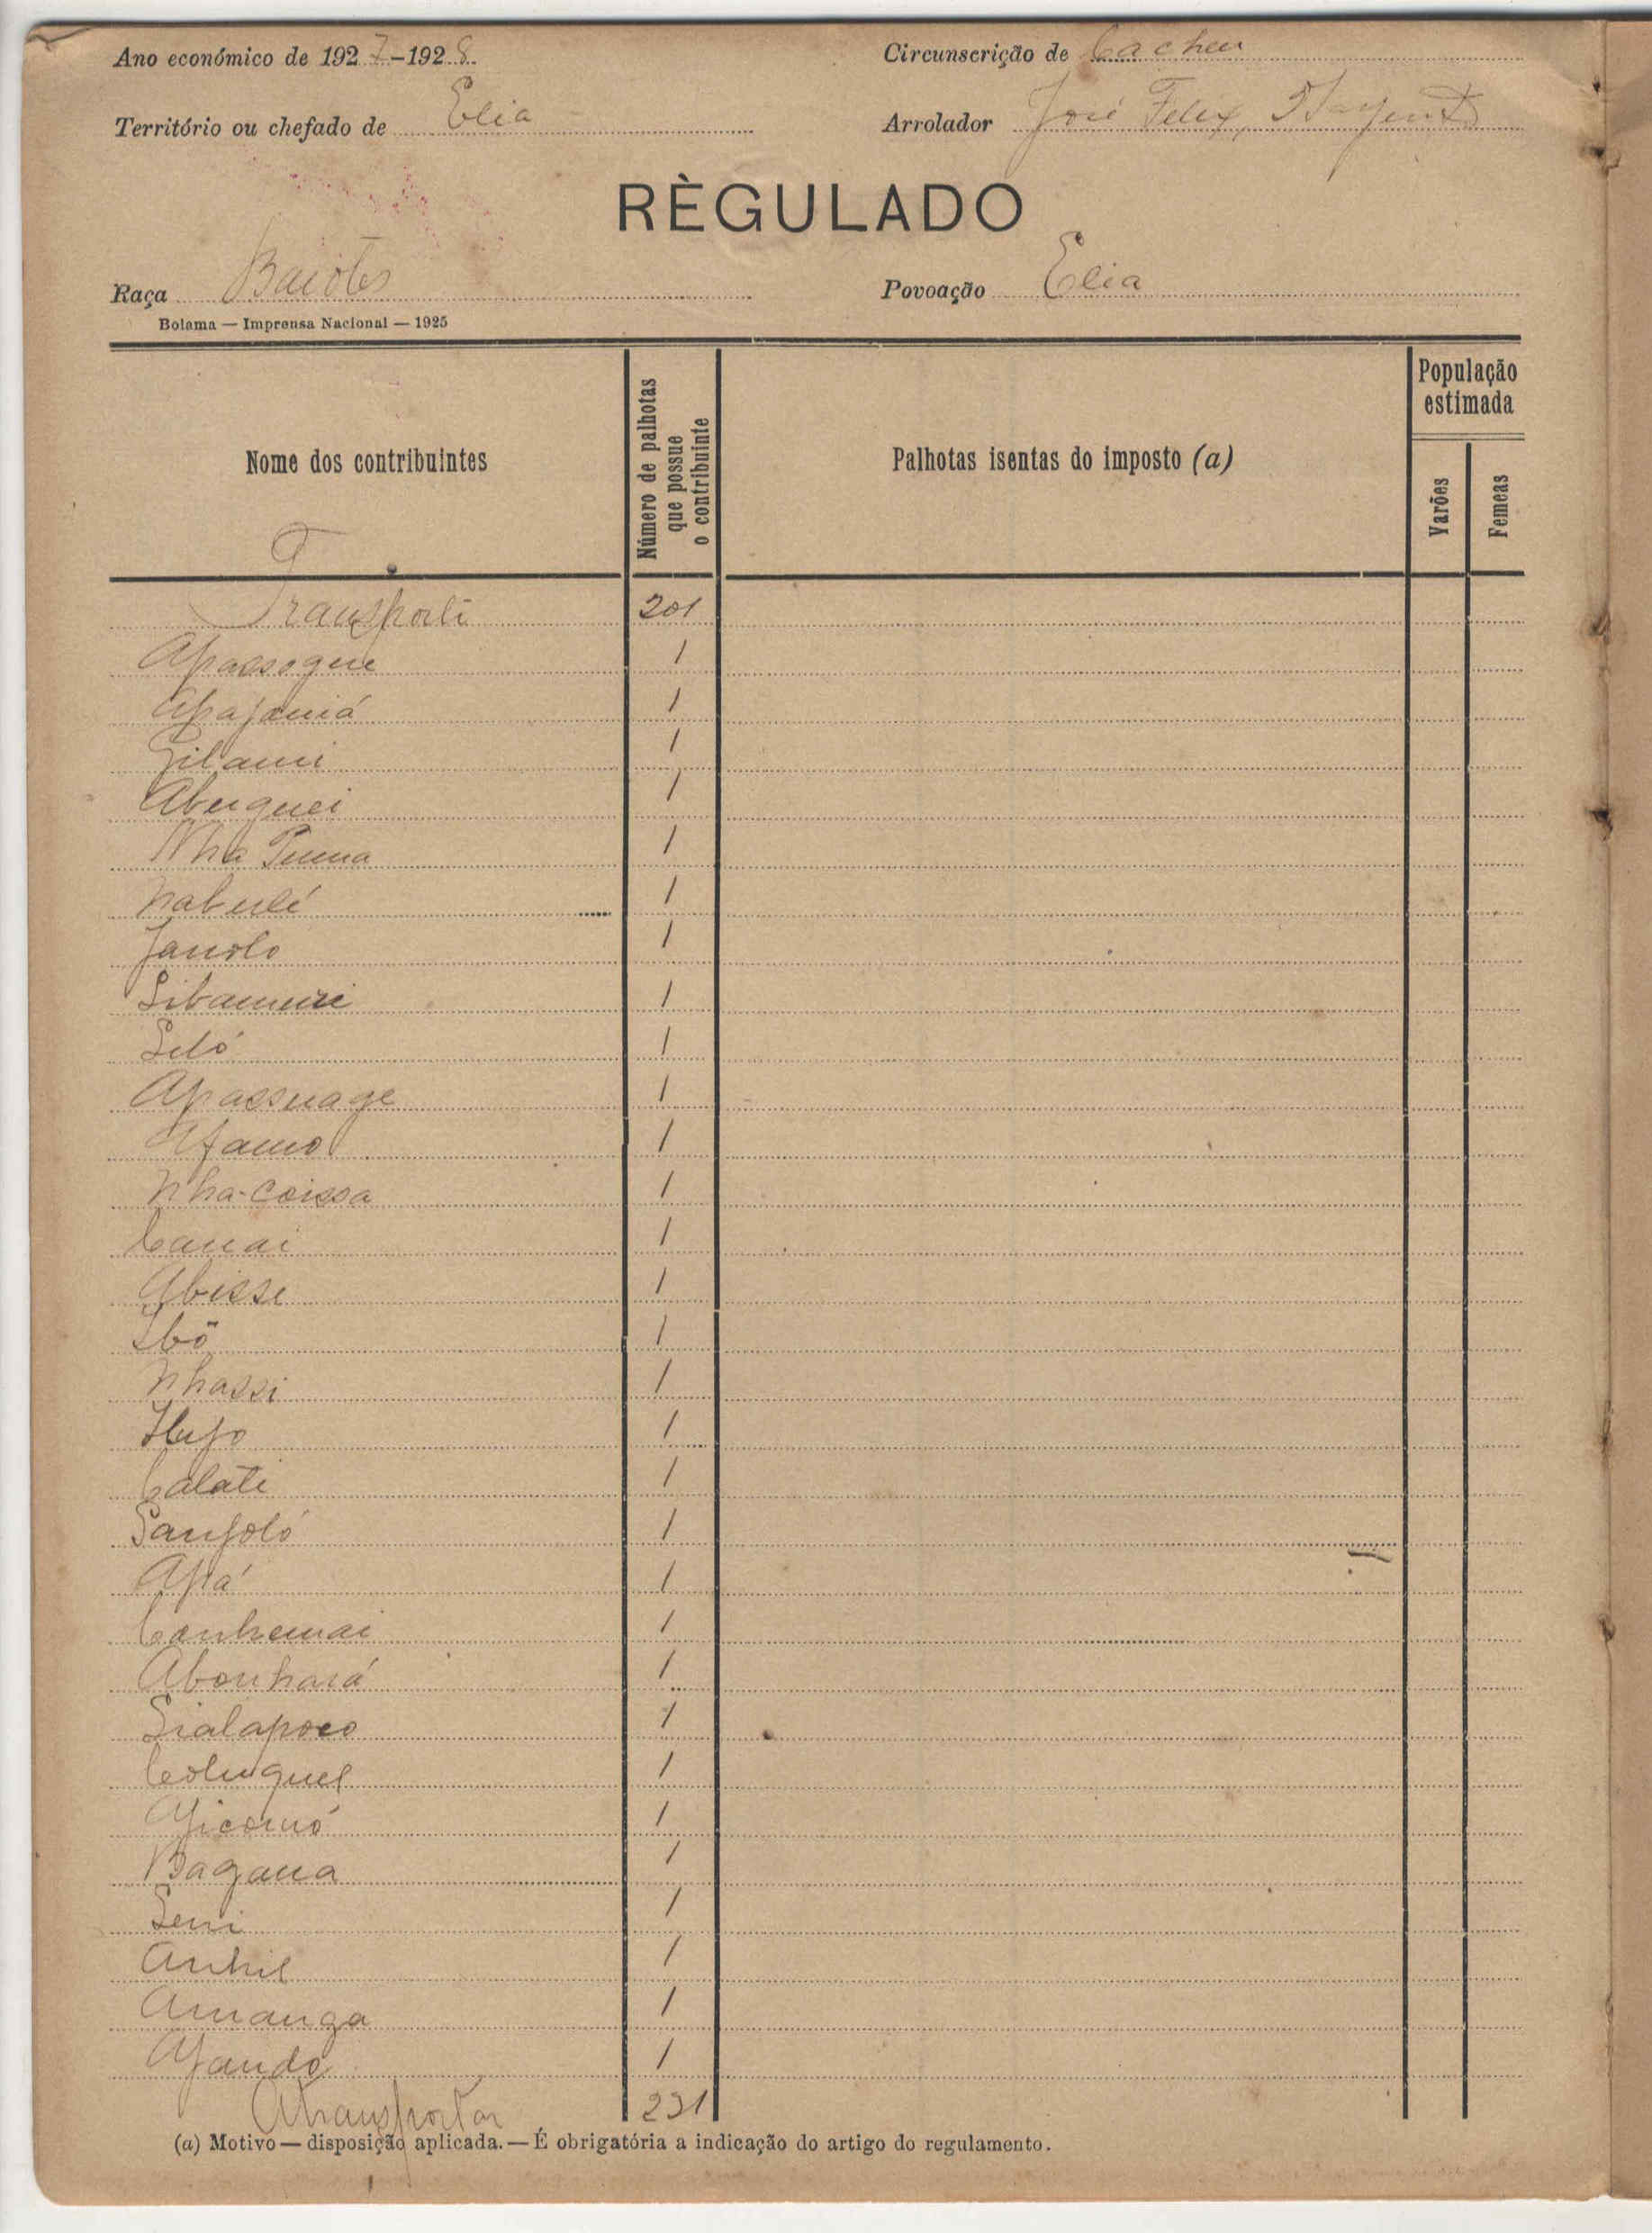 Ano económico de 1927-1928.
Circunscrição de Cacheu
Território ou chefado de Elia
Arrolador José Felix,
RÈGULADO
Raça Baiotes
Povoação Elia
Bolama — Imprensa Nacional — 1925
Nome dos contribuintes
Número de palhotas que possue o contribuinte
Palhotas isentas do imposto (a)
População estimada
Varões
Femeas
Transporte 201
Apassogue 1
Apajamá 1
Gilami 1
Abuguei 1
Nha Puma 1
Nabulé 1
Janolo 1
1
Siló 1
Apassuage 1
Afamo 1
Nha-Coissa 1
Canai 1
Abisse 1
Ibõ 1
Nhassi 1
1
Calati 1
Sanjoló 1
Apá 1
Canhemai 1
Abonhará 1
Sialapoco 1
Coluguel 1
1
Bagana 1
Seni 1
Anhil 1
Amanga 1
1
A transportar 231
(a) Motivo — disposição aplicada. — É obrigatória a indicação do artigo do regulamento.